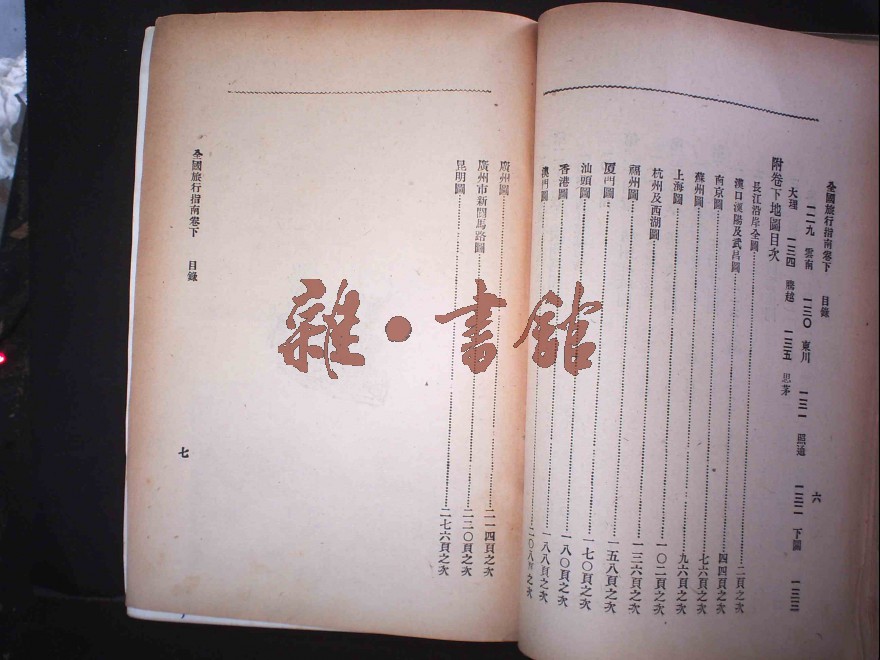 全國旅行指南卷下 目錄 六
一二九 雲南 一三〇 東川 一三一 照通 一三二 下關 一三三
大理 一三四 騰越 一三五 思茅
附卷下地圖目次
長江沿岸全圖……二頁之次
漢口漢陽及武昌圖……四四頁之次
南京圖……七六頁之次
蘇州圖……九六頁之次
上海圖……一〇二頁之次
杭州及西湖圖……一三六頁之次
福州圖……一五八頁之次
廈門圖……一七〇頁之次
汕頭圖……一八〇頁之次
香港圖……一八八頁之次
澳門圖……二〇八頁之次
廣州圖……二一四頁之次
廣州市新闢馬路圖……二二〇頁之次
昆明圖……二七六頁之次
全國旅行指南卷下 目錄 七
雜·書館